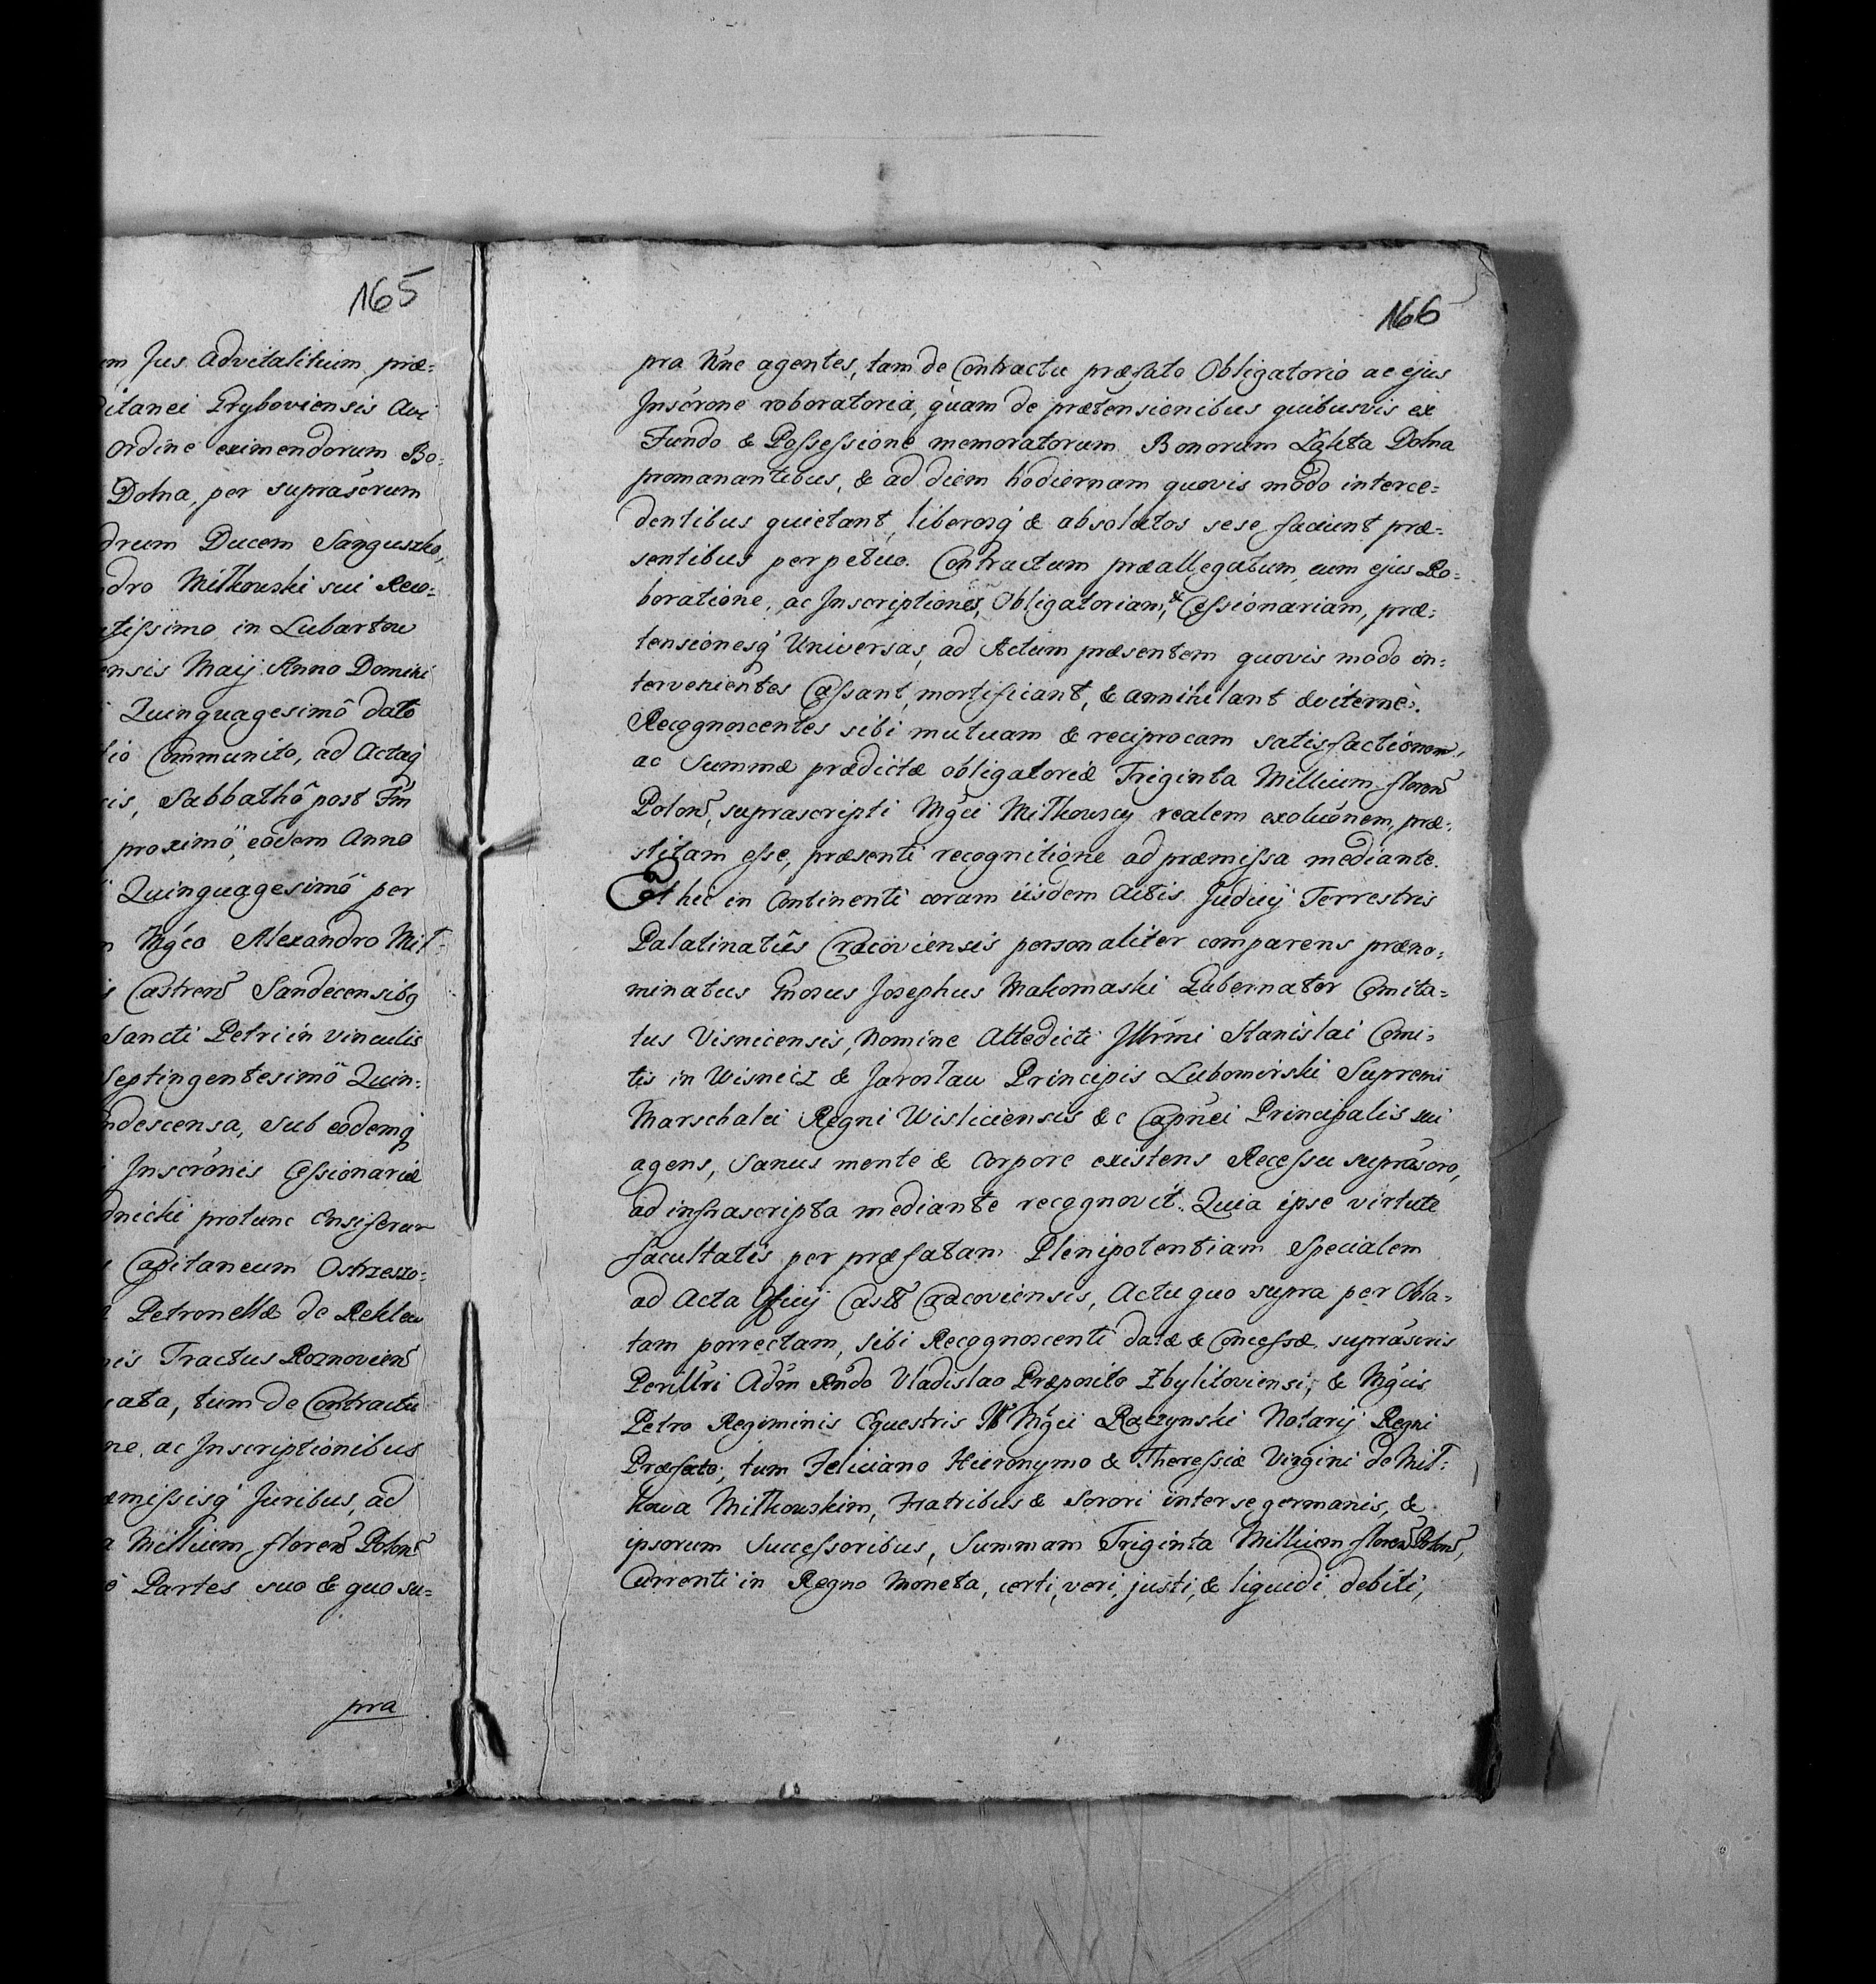 165
um Jus Advitalitium, præ=
ditanei Gryboviensis Avi
ordine eximendorum Bo=
Dolna, per suprascrum
drum Ducem Sanguszko,
ndro Mitkowski sui Reco=
tissimo in Lubartow
ensis Maij Anno Domini
Quinquagesimô dato
lio Communito, ad Actaq́
cis, Sabbathô post Fm̃
proximô, eôdem Anno
Quinquagesimô per
Mǵco Alexandro Mit=
s Castren̄ Sandecensibq
Sancti Petri in vinculis
Septingentesimô Quin=
ndescensa, sub eôdemq
Inscrônis Cessionariæ
dnicki protunc Ensiferum
Capitaneum Ostrzeszo=
Petronellæ de Reklew
nis Tractus Roznovien̄
cata, tum de Contractu
ne, ac Inscriptionibus
æmissisq́ Juribus, ad
a Millium floren̄ Polon̄
ô Partes suo & quo su=
pra
166
pra Nn̄e agentes, tam de Contractu præfato Obligatorio ac ejus
Inscrone roboratoria, quam de prætensionibus quibusvis ex
Fundo & Possessione memoratorum Bonorum Łąkta Dolna
promanantibus, & ad diem hodiernam quovis modo interce=
dentibus quietant, liberosq́ & absolutos sese faciunt præ=
sentibus perpetuo. Contractum præallegatum, cum ejus Ro=
boratione, ac Inscriptiones, Obligatoriam, & Cessionariam, præ=
tensionesq́ Universas, ad Actum præsentem quovis modo in=
tervenientes Cassant, mortificant, & annihilant æviternè.
Recognoscentes sibi mutuam & reciprocam satisfactionem,
ac Summæ prædictæ obligatoriæ Triginta Millium floren̄
Polon̄, suprascripti Mǵci Mitkowscy realem exoluônem, præ=
stitam esse, præsenti recognitione ad præmissa mediante.
Et hic in Continenti coram iisdem Actis Judicij Terrestris
Palatinatûs Cracoviensis personaliter comparens præno=
minatus Gn̄osus Josephus Makomaski Gubernator Comita=
tus Visnicensis, Nomine Altedicti Jllr̄mi Stanislai Comi=
tis in Wisnicz & Jarosław Principis Lubomirski Supremi
Marschalci Regni Wisliciensis &c Capnei Principalis sui
agens, sanus mente & Corpore existens Recessu suprascro,
ad infrascripta mediante recognovit. Quia ipse virtute
facultatis per præfatam Plenipotentiam Specialem
ad Acta Offcij Castr̄ Cracoviensis, Actu quo supra per Obla=
tam porrectam, sibi Recognoscenti datæ & Concessæ, suprascris
Perillr̄i Adm̄ Rndo Vladislao Præposito Zbylitoviensi, & Mǵcis
Petro Regiminis Equestris Mǵci Raczynski Notarij Regni
Præfecto, tum Feliciano Hieronymo & Theressiæ Virgini de Mit=
kowa Mitkowskim, Fratribus & Sorori inter se germanis, &
ipsorum Successoribus, Summam Triginta Millium floren̄ Polon̄,
Currenti in Regno Moneta, certi, veri, justi, & liquidi debiti,